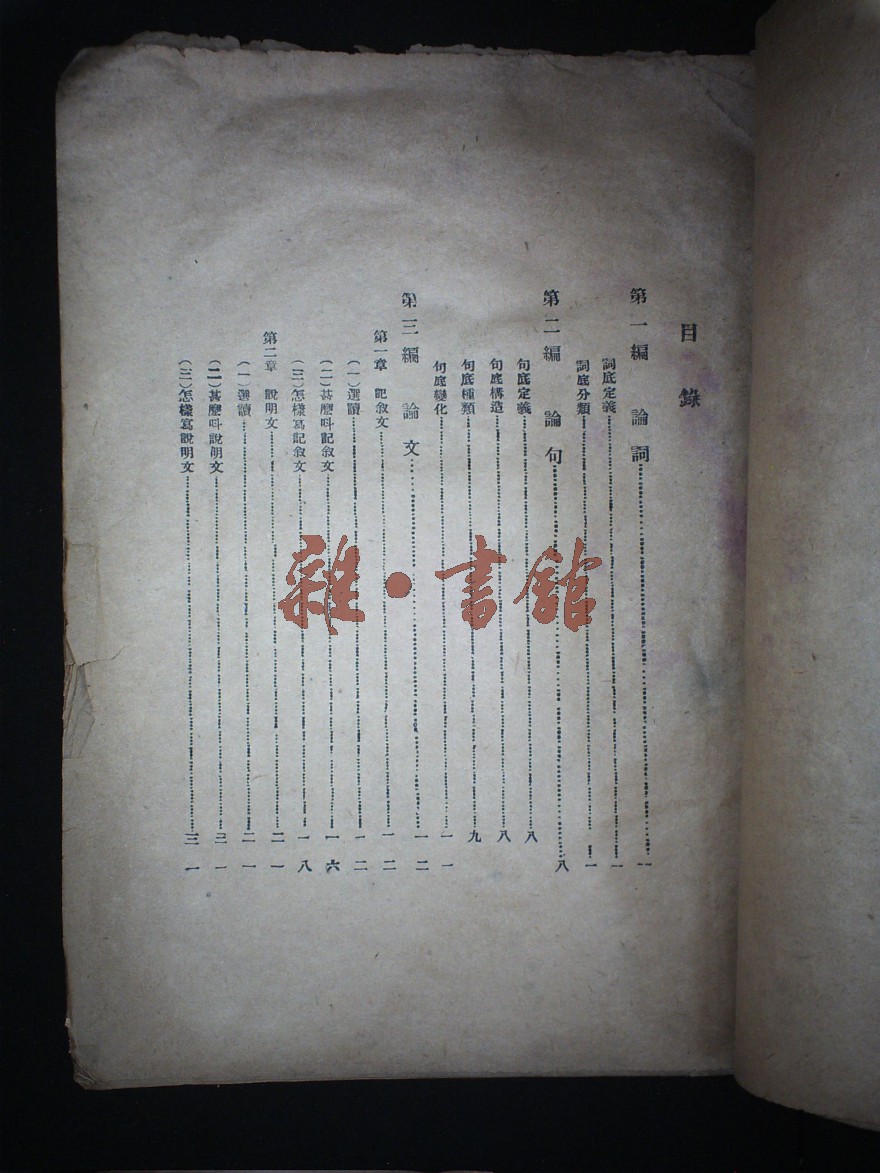 目錄
第一編 論詞……一
詞底定義……一
詞底分類……一
第二編 論句……八
句底定義……八
句底構造……八
句底種類……九
句底變化……一一
第三編 論文……一二
第一章 記敘文……一二
(一)選讀……一二
(二)甚麼叫記敘文……一六
(三)怎樣寫記敘文……一八
第二章 說明文……二一
(一)選讀……二一
(二)甚麼叫說明文……三一
(三)怎樣寫說明文……三一
雜·書館